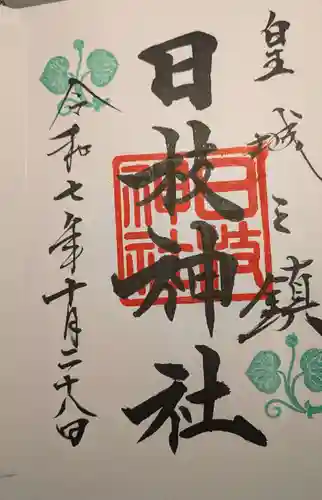 皇城之鎮
日枝神社
日枝
神社
令和七年十月二十八日